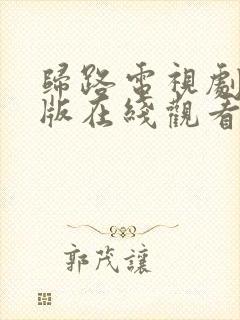 歸路電視劇
版在綫觀看
郭茂讓